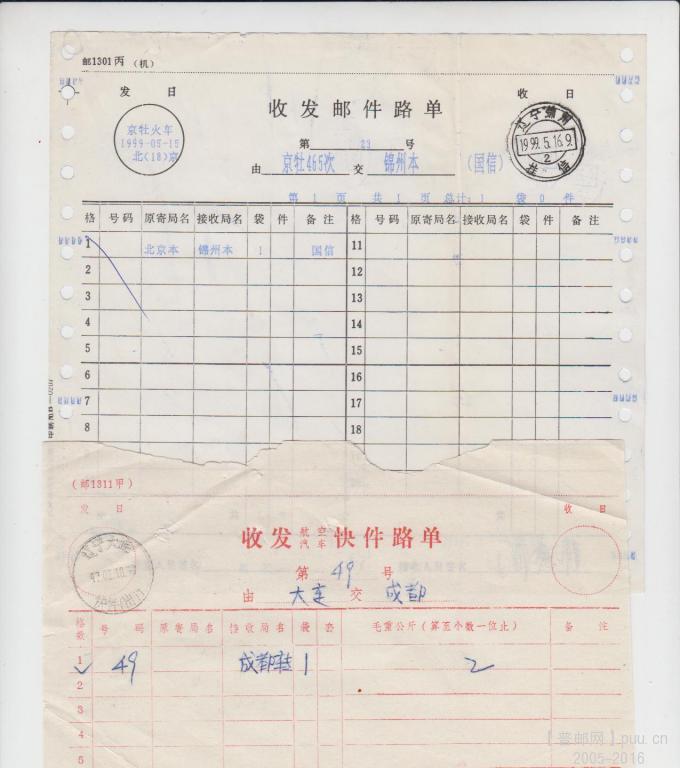 邮1301丙 (机)
发 日
收 日
收发邮件路单
京牡火车
1999-05-15
北(18)京
辽宁锦州
1999.5.16.9
2
第 23 号
由 京牡465次 交 锦州本 (国信)
第 1 页 共 1 页 总计: 1 袋 0 件
格 号码 原寄局名 接收局名 袋 件 备注 格 号码 原寄局名 接收局名 袋 件 备注
1 北京本 锦州本 1 国信 11
2 12
3 13
4 14
5 15
6 16
7 17
8 18
(邮1311甲)
发 日
收 日
收发 航空 汽车 快件路单
第 49 号
由 大连 交 成都
格数 号码 原寄局名 接收局名 袋 套 毛重公斤 (算至小数一位止) 备注
1 49 1 2
2
3
4
5
【普邮网】puu.cn
2005-2016